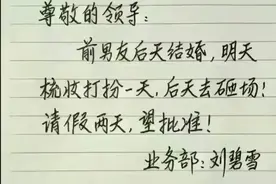 尊敬的领导：
前男友后天结婚，明天
梳妆打扮一天，后天去砸场！
请假两天，望批准！
业务部：刘碧雪